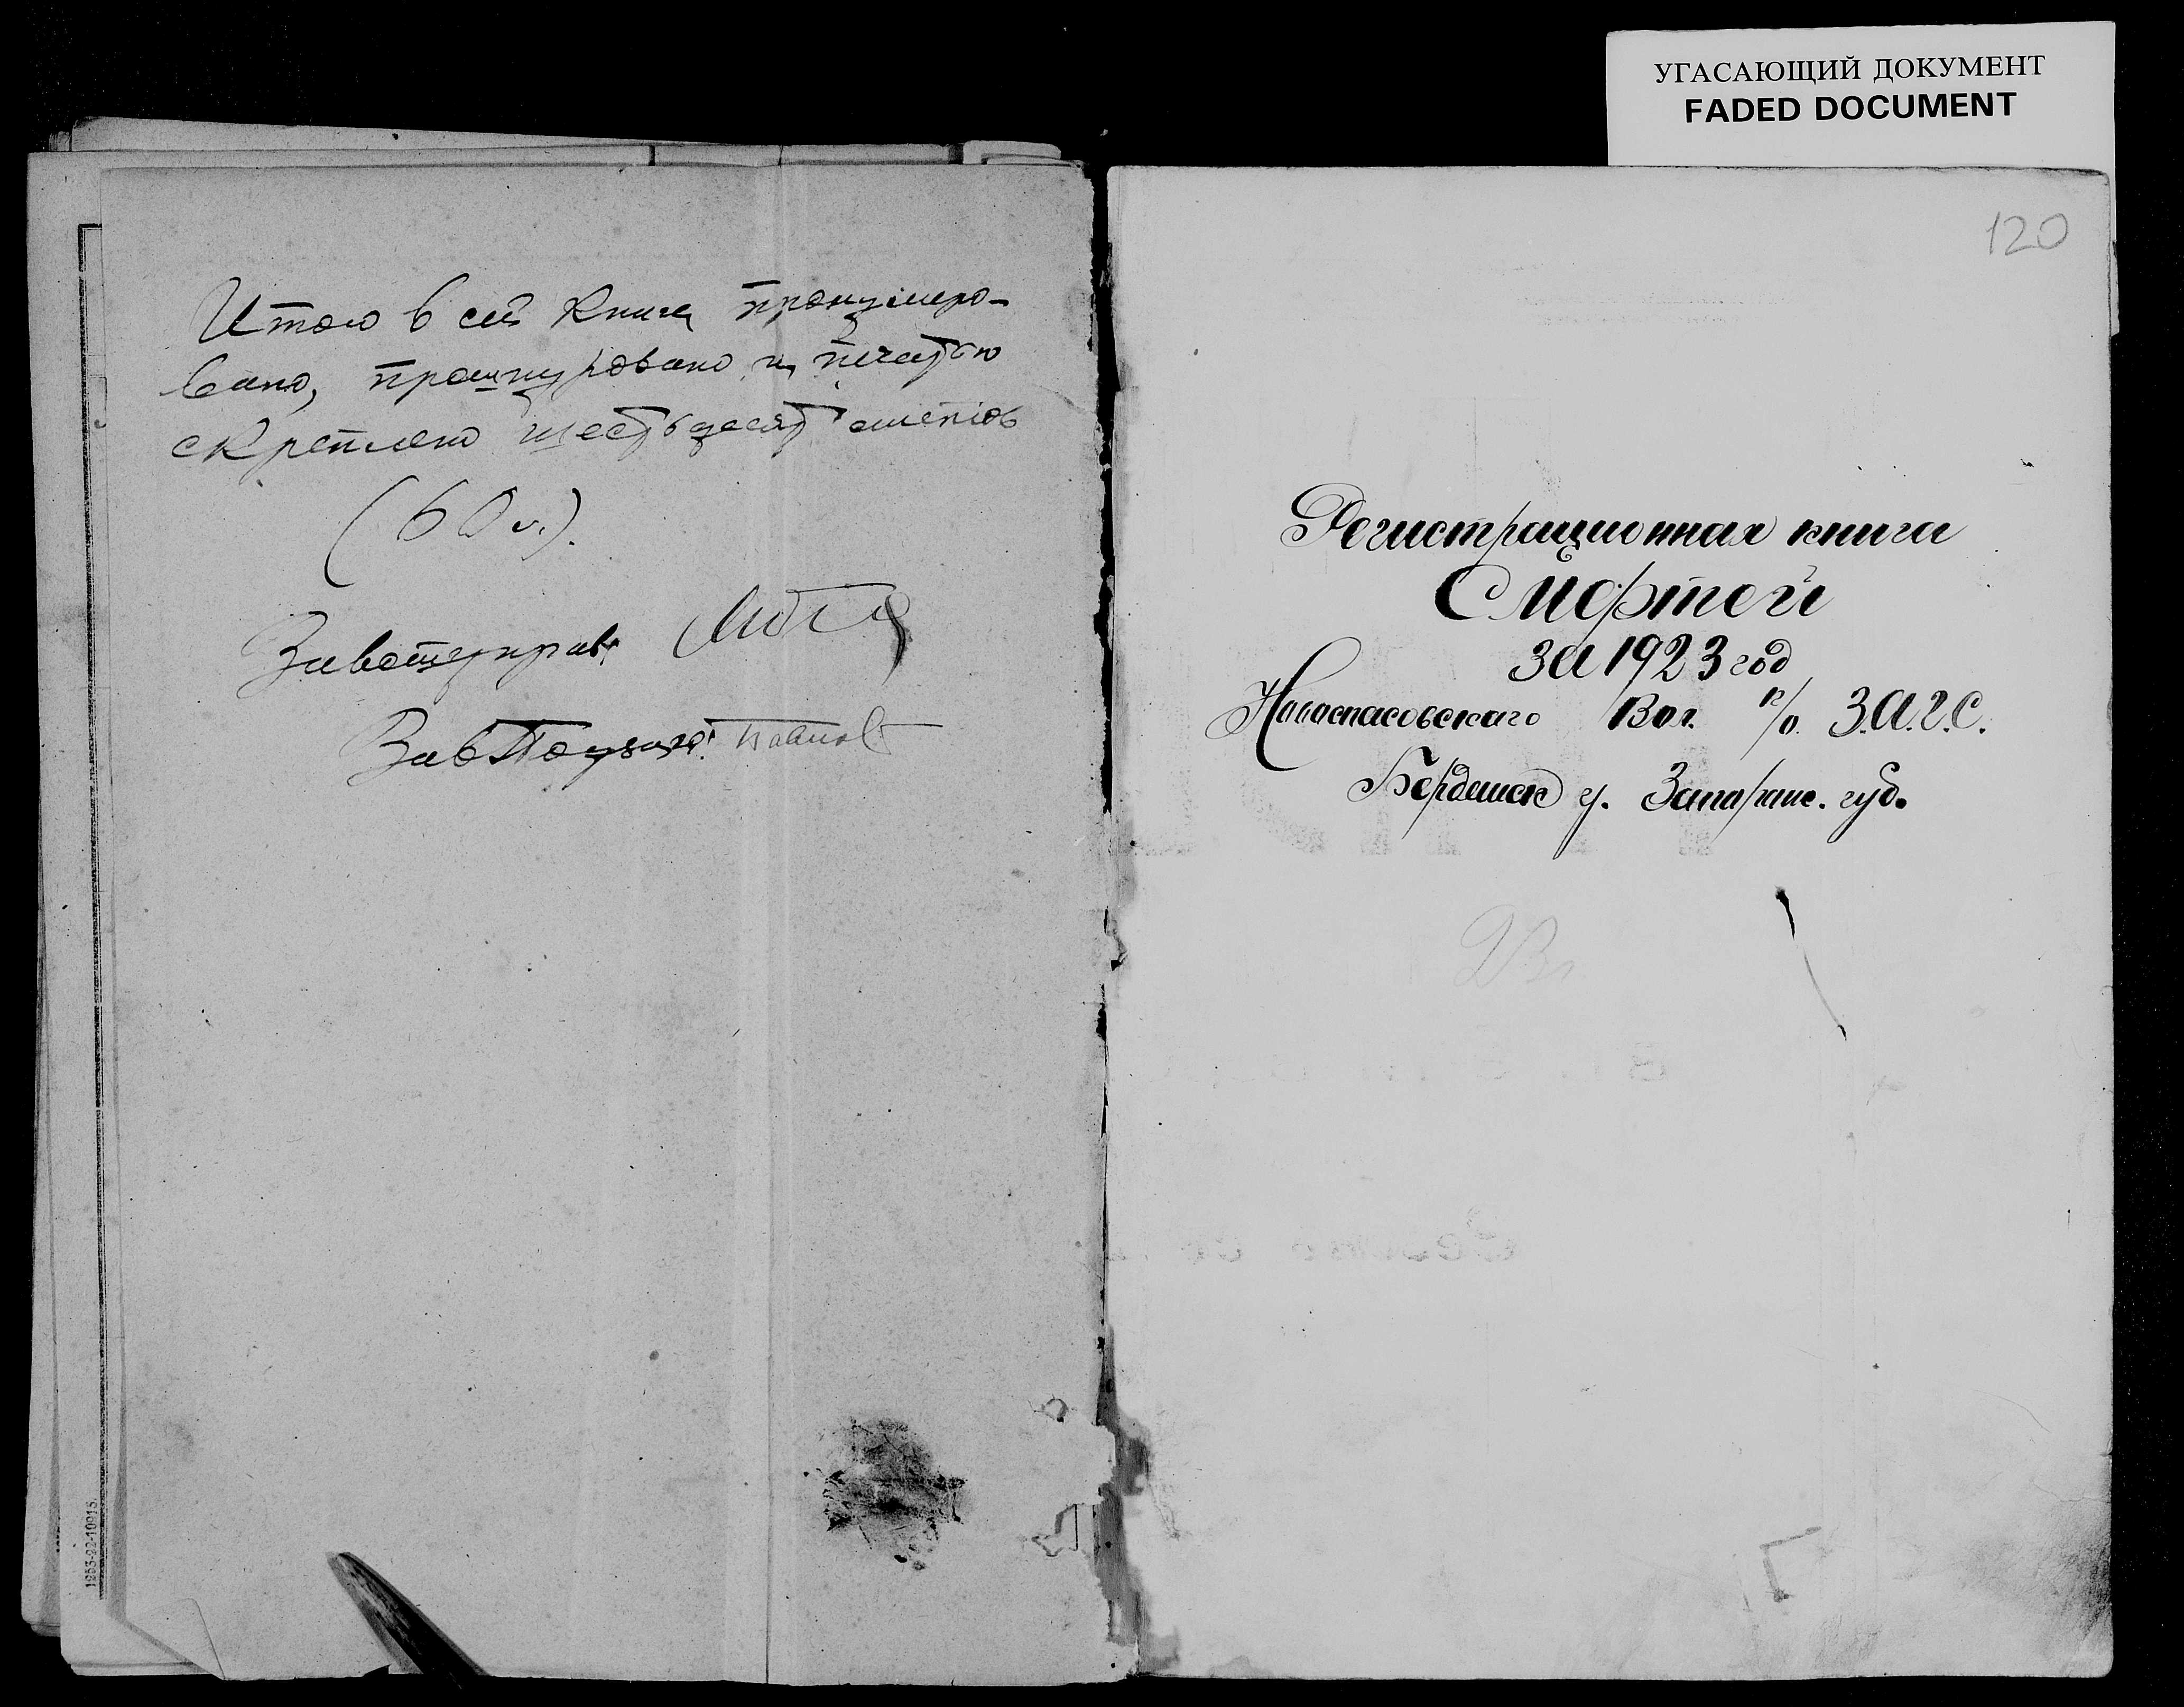 УГАСАЮЩИЙ ДОКУМЕНТ
FADED DOCUMENT
Итого в сей Книге пронумеро-
вано, прошнуровано и печатью
скреплено шестьдесят листов
(60 л.).
Завотуправ
Зав
120
Регистрационная книга
Смертей
за 1923 год
Новоспасовскаго Вол. п/о. З.А.Г.С.
Бердянск у. Запорожс. губ.
1253-22-10915.